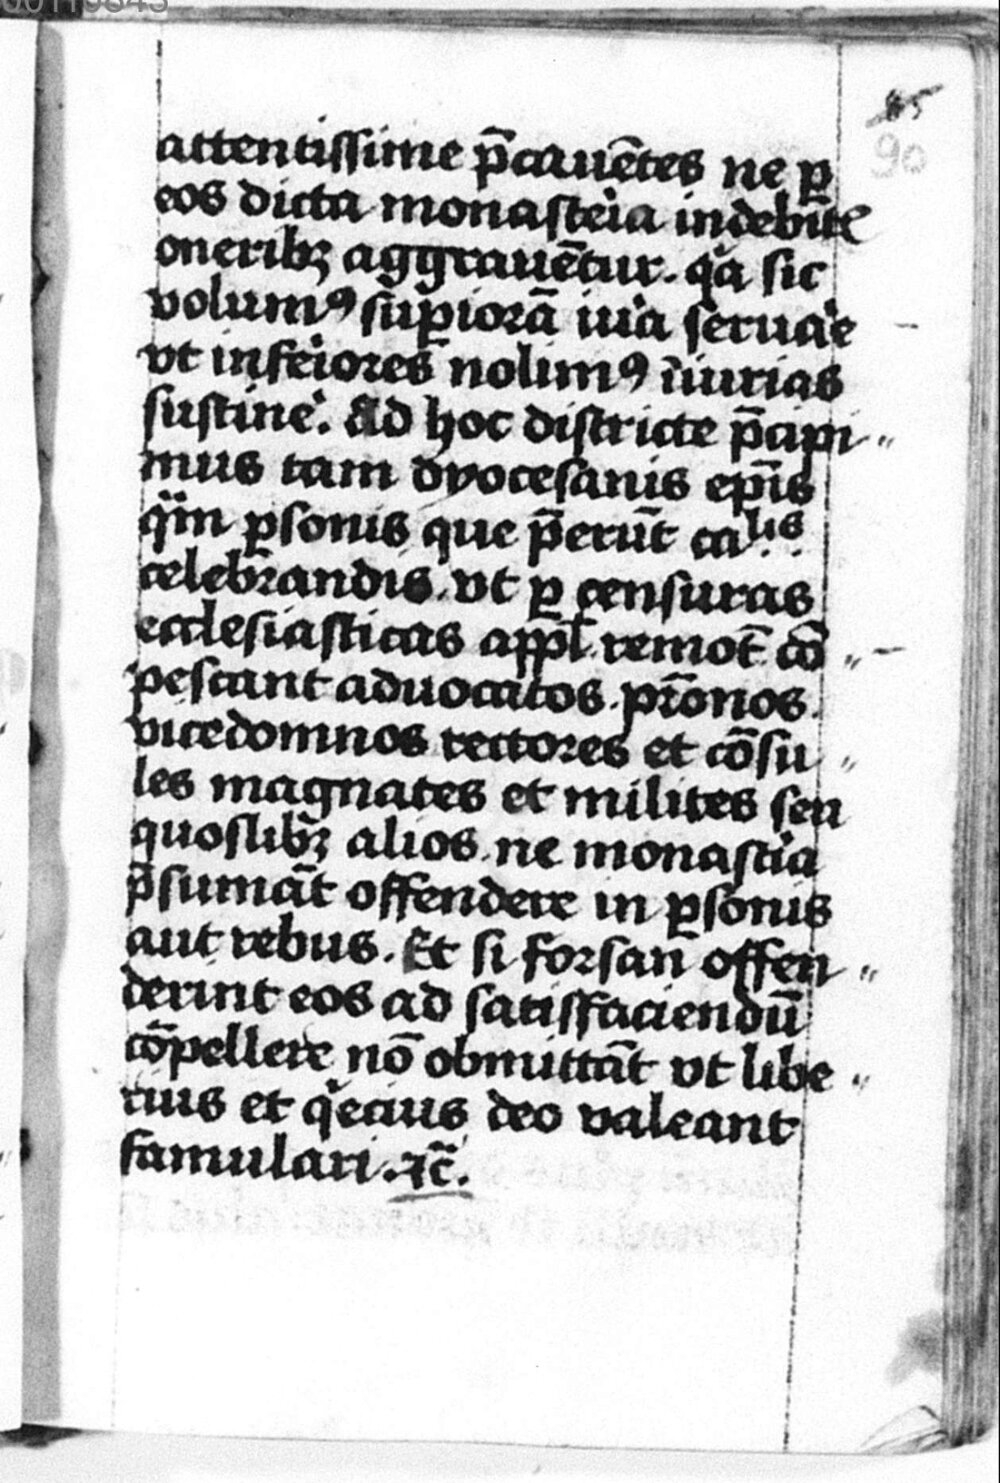 85
90
attentissime p̄cauētes ne ꝑ
eos dicta monast'ia indebit̄e
oneribꝫ aggrauētur. q'a sic
volumꝰ sup̄ioꝝ iu'a s'erua'e
vt inf'eiores nolimꝰ īiurias
sustine'. Ad hoc districte p̄cipi〃
mus tam dyocesanis ep̄is
q̈m ꝑsonis que p̄erūt caᵖˡⁱˢ
celebrandis. vt ꝑ censuras
ecclesiasticas appl̄ remot̄ cō〃
pescant aduocatos. pr̄onos.
vicedomnos rectores et cōsu〃
les magnates et milites seu
quoslibꝫ alios. ne monast'ia
p̄sumāt offendere in ꝑsonis
aut rebus. Et si forsan offen〃
derint eos ad satisfaciendū
cōpellere nō obmittāt vt libe〃
rius et q'ecius deo valeant
famulari. ⁊c̄.